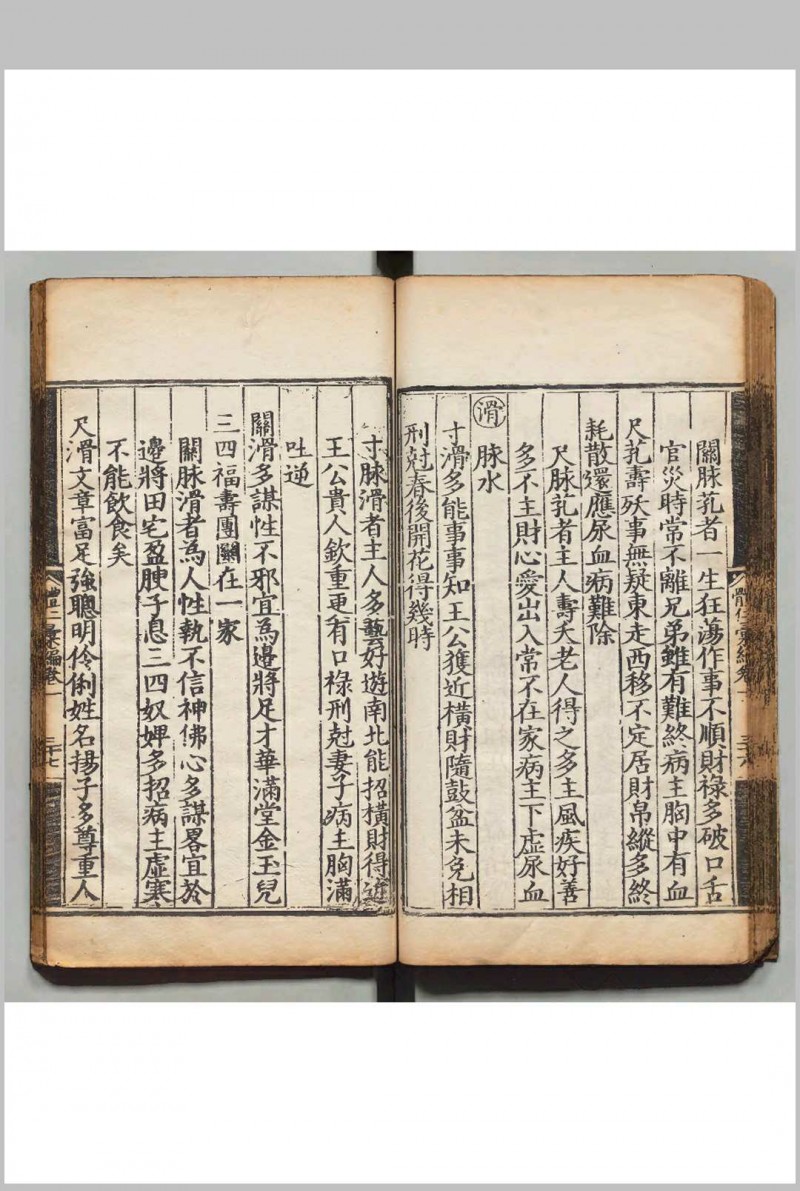 關脉芤者一生狂蕩作事不順財祿多破口舌
官災時常不離兄弟雖有難終病主胸中有血
尺芤壽殀事無疑東走西移不定居財帛縱多終
耗散還應尿血病難除
尺脉芤者主人壽夭老人得之多主風疾好善
多不主財心愛出入常不在家病主下虛尿血
滑
脉水
寸滑多能事事知王公獲近橫財隨鼓盆未免相
刑尅春後開花得幾時
體仁彙編卷一
三十六
寸脉滑者主人多藝好遊南北能招橫財得近
王公貴人欽重更有口祿刑尅妻子病主胸滿
吐逆
關滑多謀性不邪宜為邉將足才華滿堂金玉兒
三四福壽團圞在一家
關脉滑者為人性執不信神佛心多謀畧宜於
邉將田宅盈腴子息三四奴婢多招病主虛寒
不能飲食矣
尺滑文章富足強聰明伶俐姓名揚子多尊重人
體仁彙編卷一
三十七